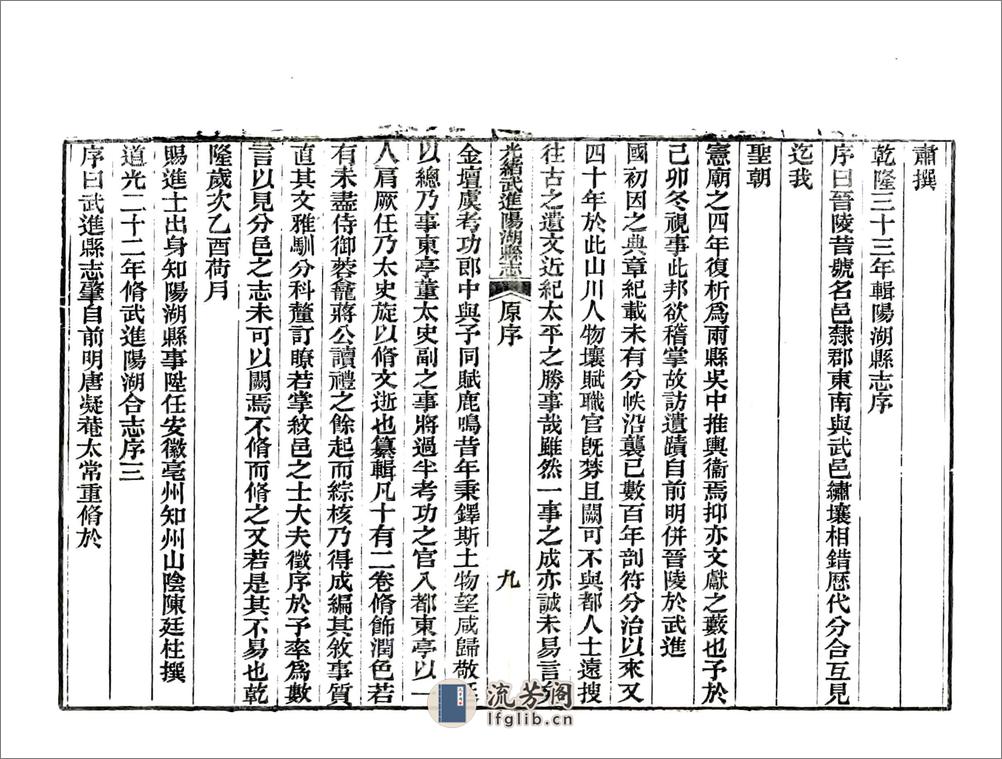 肅撰
乾隆三十三年輯陽湖縣志序
序曰晉陵昔號名邑隸郡東南與武邑繡壤相錯歷代分合互見
迄我
聖朝
憲廟之四年復析爲兩縣吳中推輿衞焉抑亦文獻之藪也予於
己卯冬視事此邦欲稽掌故訪遺蹟自前明併晉陵於武進
國初因之典章紀載未有分帙沿襲已數百年剖符分治以來又
四十年於此山川人物壤賦職官旣棼且闕可不與都人士遠搜
往古之遺文近紀太平之勝事哉雖然一事之成亦誠未易言
光緒武進陽湖縣志
原序
九
金壇虞考功郎中與予同賦鹿鳴昔年秉鐸斯土物望咸歸敬
以總乃事東亭董太史副之事將過半考功之官入都東亭以一
人肩厥任乃太史旋以脩文逝也纂輯凡十有二卷脩飾潤色若
有未盡侍御蓉龕蔣公讀禮之餘起而綜核乃得成編其敘事質
直其文雅馴分科釐訂瞭若掌紋邑之士大夫徵序於予率爲數
言以見分邑之志未可以闕焉不脩而脩之又若是其不易也乾
隆歲次乙酉荷月
賜進士出身知陽湖縣事陞任安徽亳州知州山陰陳廷柱撰
道光二十二年脩武進陽湖合志序三
序曰武進縣志肇自前明唐凝菴太常重脩於
流芳阁
lfglib.cn